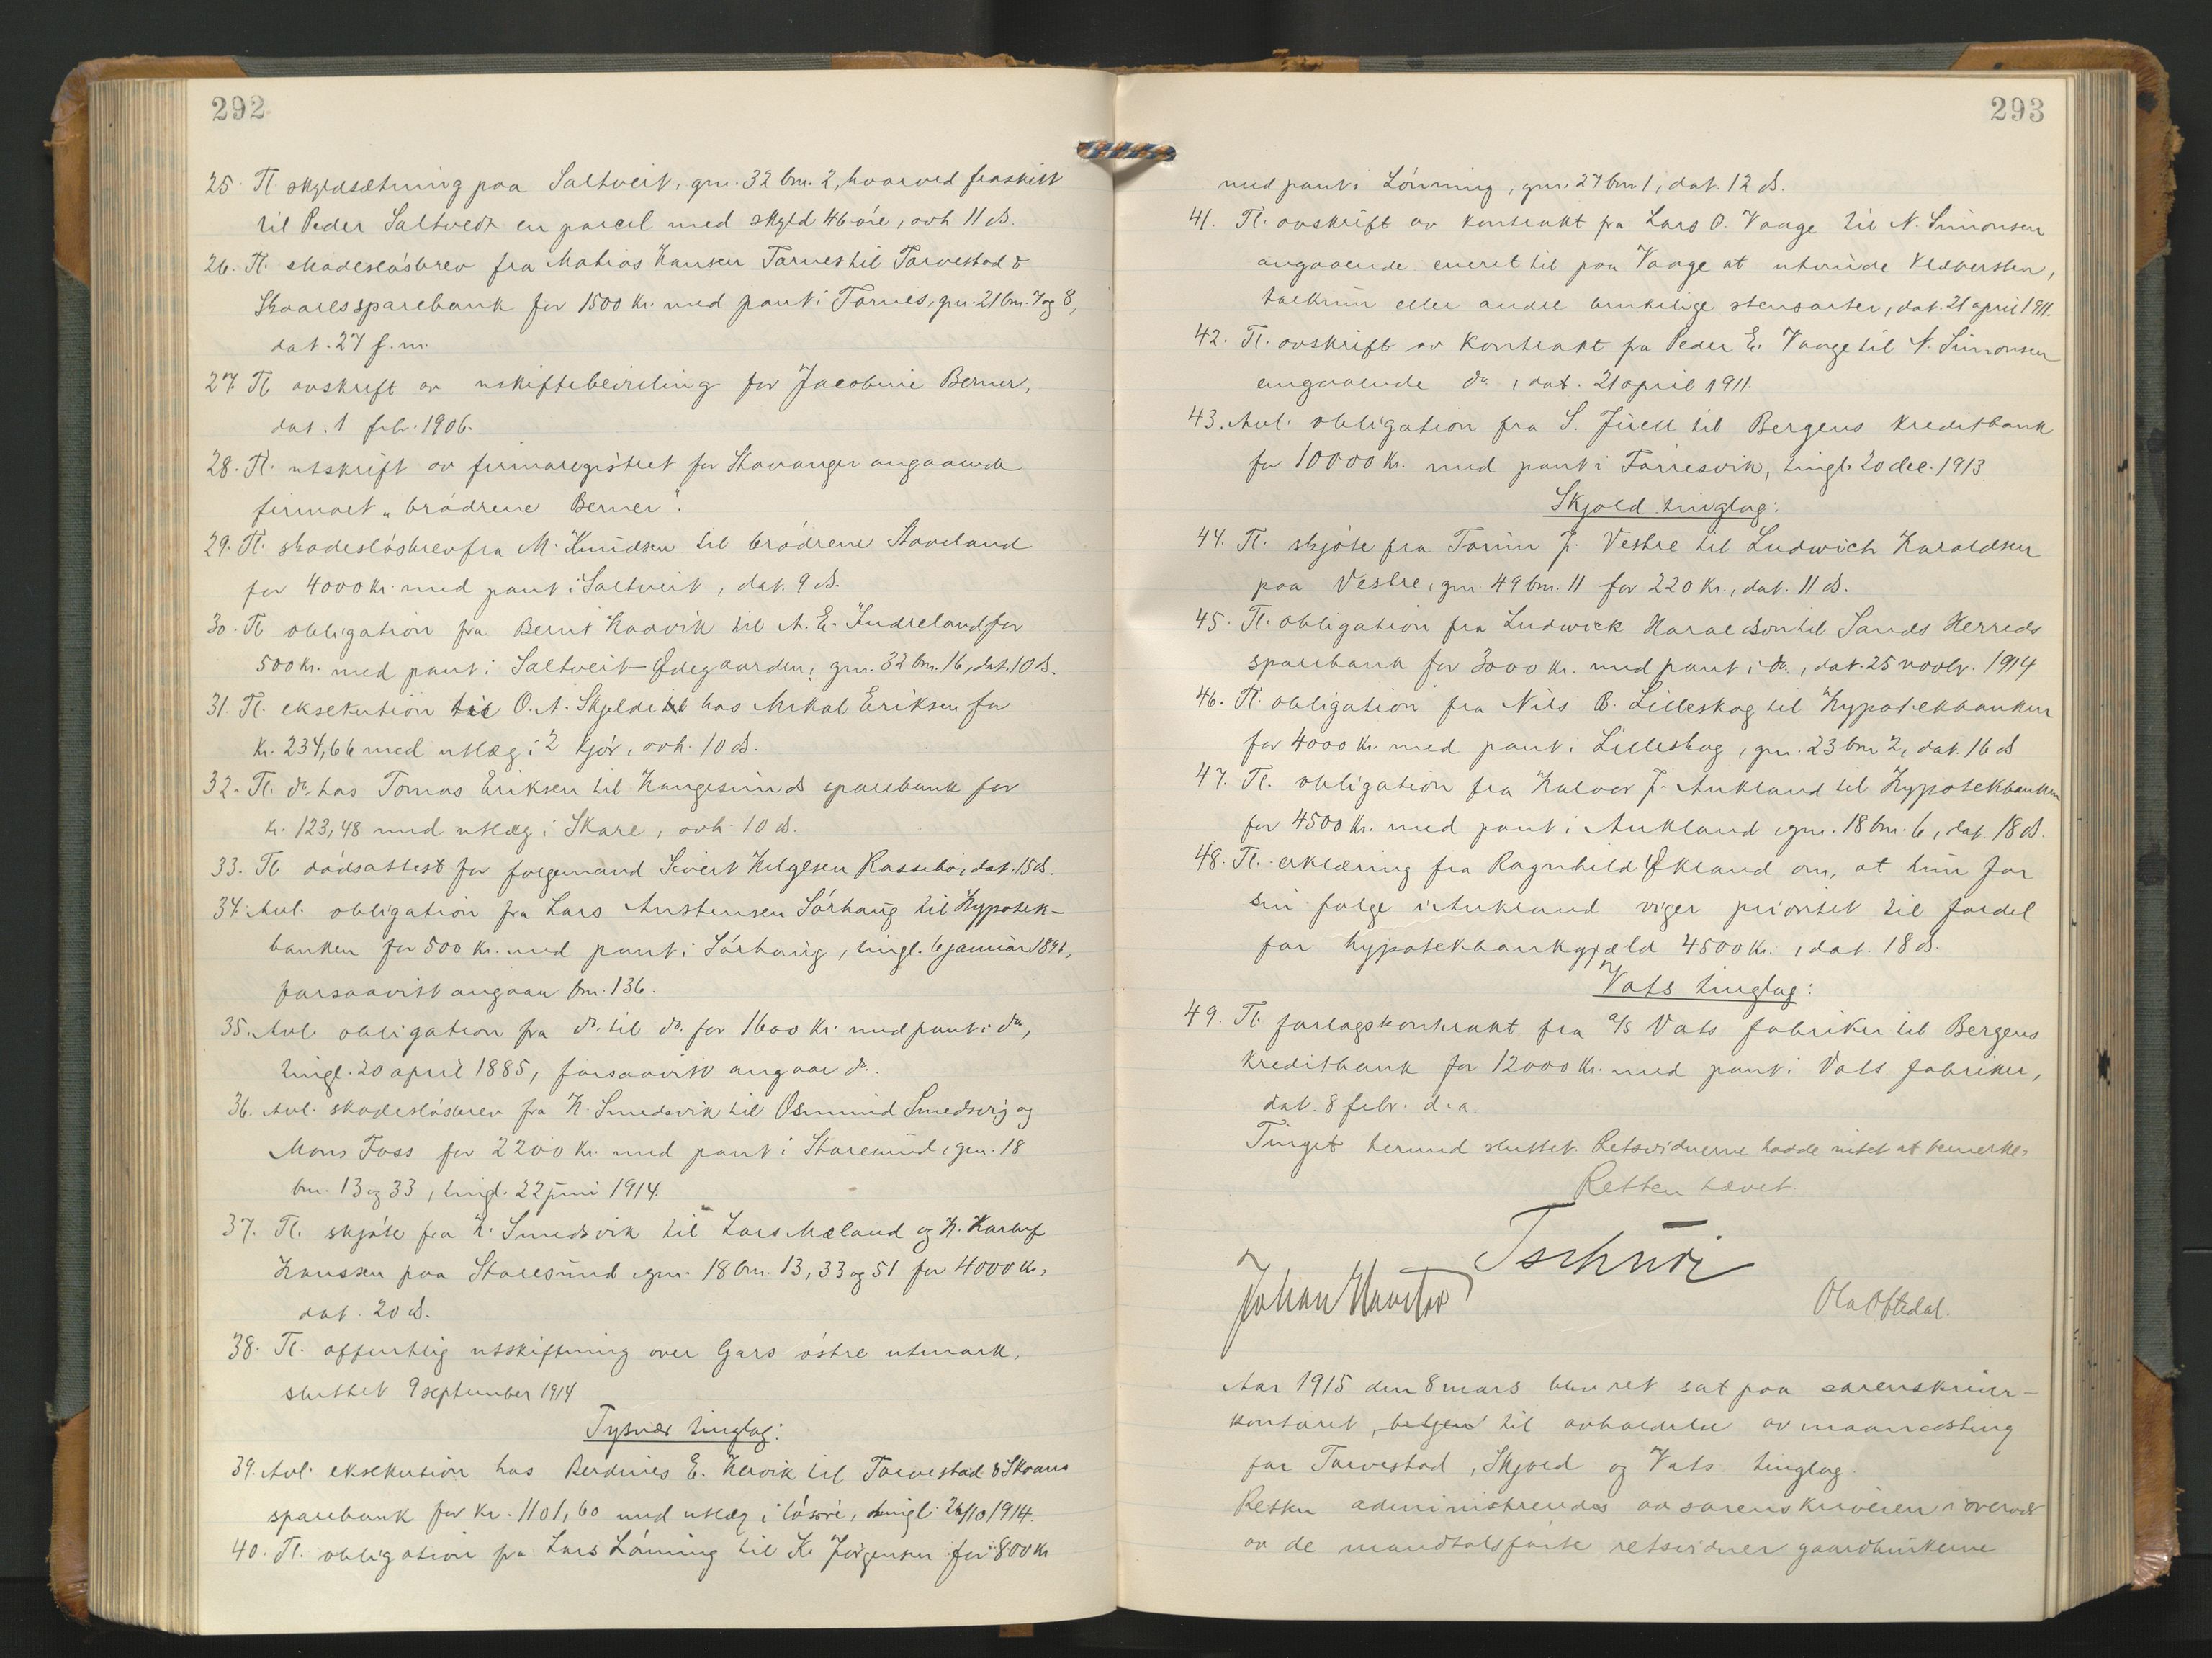 292
25. Tl. skyldsætning paa Saltveit, gnr. 32 bnr. 2, hvorved fraskilt
til Peder Saltvedt en parcel med skyld 46 øre, avh 11 ds.
26. Tl. skadesløsbrev fra Matias Hansen Tornes til Torvestad &
Skaares sparebank for 1500 kr. med pant i Tornes, gnr. 21 bnr. 7 og 8,
dat. 27 f.m.
27. Tl. avskrift av uskiftebevilling for Jacobine Berner,
dat. 1 febr. 1906.
28. Tl. utskrift av firmaregistret for Stavanger angaaende
firmaet „brødrene Berner".
29. Tl. skadesløsbrev fra M. Knudsen til brødrene Staveland
for 4000 kr. med pant i Saltveit, dat. 9 ds.
30. Tl obligation fra Bernt Haavik til A. E. Indreland for
500 kr. med pant i Saltveit-Ødegaarden, gnr. 32 bnr. 16, dat. 10 ds.
31. Tl. eksekution til O. A. Skjelde hos Mikal Eriksen for
kr. 234,66 med utlæg i 2 kjør, avh. 10 ds.
32. Tl. do. hos Tomas Eriksen til Haugesunds sparebank for
kr. 123,48 med utlæg i Skare, avh. 10 ds.
33. Tl dødsattest for forgemand Sivert Helgesen Rossebø, dat. 15 ds.
34. Avl. obligation fra Lars Anstensen Sørhaug til Hypotek-
banken for 500 kr. med pant i Sørhaug, tingl. 6 januar 1891,
forsaavidt angaar bnr. 136.
35. Avl. obligation fra do. til do. for 1600 kr. med pant i do,
tingl. 20 april 1885, forsaavidt angaar do.
36. Avl. skadesløsbrev fra H. Smedsvik til Osmund Smedsvig og
Mons Foss for 2200 kr. med pant i Storesund, gnr. 18
bnr. 13 og 33, tingl. 22 juni 1914.
37. Tl. skjøte fra H. Smedsvik til Lars Mæland og H.
Hanssen paa Storesund, gnr. 18 bnr. 13, 33 og 51 for 4000 kr,
dat. 20 ds.
38. Tl. offentlig utskiftning over Gars østre utmark,
sluttet 9 september 1914
Tysvær tinglag:
39. Avl. eksekution hos Berdines E. Hervik til Torvestad & Skaare
sparebank for kr. 1101,60 med utlæg i løsøre, tingl. 26/10 1914.
40. Tl. obligation fra Lars Lønning til K. Jørgensen for 800 kr
293
med pant i Lønning, gnr. 27 bnr 1, dat. 12 ds.
41. Tl. avskrift av kontrakt fra Lars O. Vaage til N. Simonsen
angaaende eneret til paa Vaage at utvinde klæbersten,
talkum eller andre brukelige stensarter, dat. 21 april 1911.
42. Tl. avskrift av kontrakt fra Peder E. Vaage til N. Simonsen
angaaende do, dat. 21 april 1911.
43. Avl. obligation fra S. Juell til Bergens kreditbank
for 10000 kr. med pant i Førresvik, tingl. 20 dec. 1913
Skjold tinglag:
44. Tl. skjøte fra Tormo J. Vestre til Ludwich Haraldsen
paa Vestre, gnr 49 bnr. 11 for 220 kr., dat. 11 ds.
45. Tl. obligation fra Ludwick Haraldson til Sands Herreds
sparebank for 3000 kr. med pant i do., dat. 25 novbr. 1914
46. Tl. obligation fra Nils B. Lilleskog til Hypotekbanken
for 4000 kr. med pant i Lilleskog, gnr. 23 bnr 2, dat. 16 ds
47. Tl. obligation fra Halvor J. Aukland til Hypotekbanken
for 4500 kr. med pant i Aukland, gnr. 18 bnr. 6, dat. 18 ds.
48. Tl. erklæring fra Ragnhild Økland om, at hun for
sin følge i Aukland viger prioritet til fordel
for hypotekbankgjæld 4500 kr., dat. 18 ds.
Vats tinglag:
49. Tl. forlagskontrakt fra a/s Vats fabriker til Bergens
kreditbank for 12000 kr. med pant i Vats fabriker,
dat. 8 febr. d.a.
Tinget hermed sluttet. Retsvidnerne hadde intet at bemerke.
Retten hævet.
Tschudi
Johan
Ola Oftedal.
Aar 1915 den 8 mars blev ret sat paa sorenskriver-
kontoret, til avholdelse av maanedsting
for Torvestad, Skjold og Vats tinglag.
Retten administrertes av sorenskriveren i overvær
av de mandtalsførte retsvidner gaardbrukerne